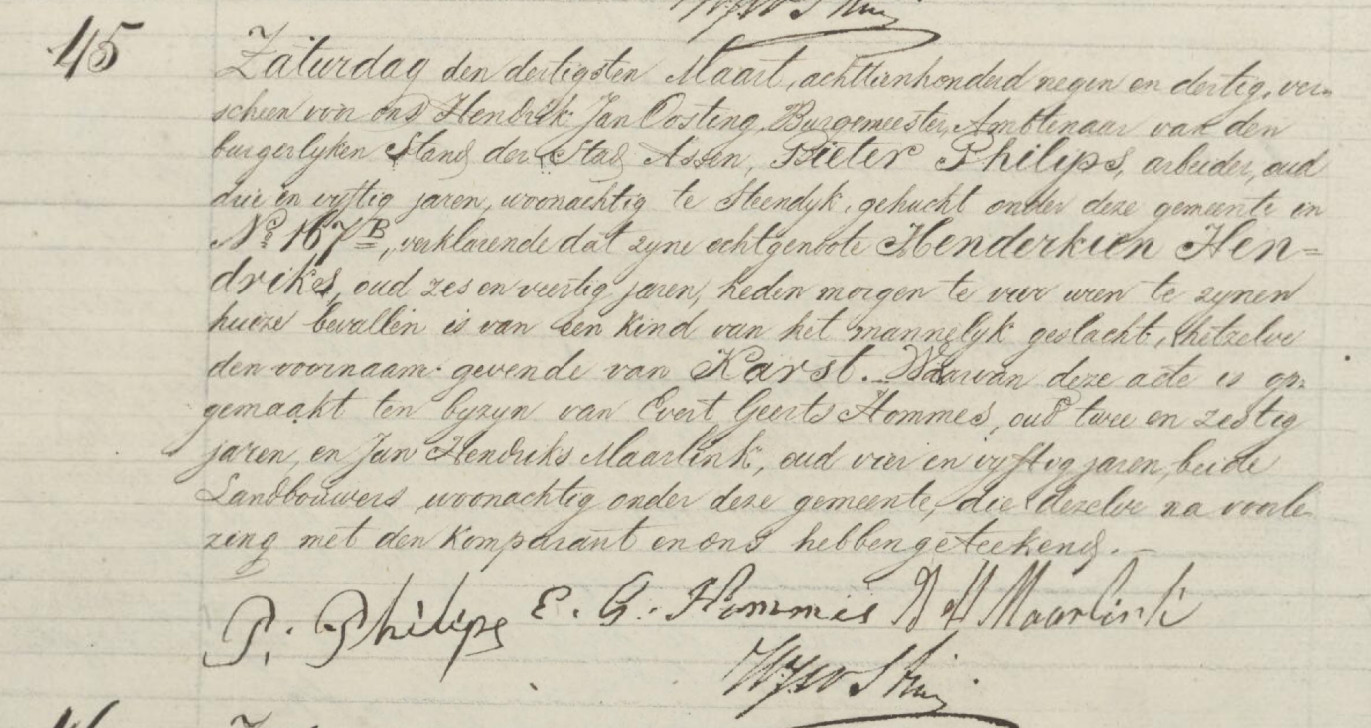 45
Zaturdag den dertigsten Maart, achttienhonderd negen en dertig, ver-
scheen voor ons Hendrik Jan Oosting, Burgemeester, Ambtenaar van den
burgerlyken Stand der Stad Assen, Pieter Philips, arbeider, oud
drie en vyftig jaren, woonachtig te Steendyk, gehucht onder deze gemeente in
No 167B, verklarende dat zyne echtgenoote Henderkien Hen=
driks, oud zes en veertig jaren, heden morgen te vier uren te zynen
huize bevallen is van een kind van het mannelyk geslacht, hetzelve
den voornaam gevende van Karst. Waarvan deze acte is op-
gemaakt ten byzyn van Evert Geerts Hommes, oud twee en zestig
jaren, en Jan Hendriks Maarlink, oud vier en vyftig jaren, beide
Landbouwers, woonachtig onder deze gemeente, die dezelve na voorle-
zing met den komparant en ons hebben geteekend.
P. Philips E. G. Hommes J H Maarlink